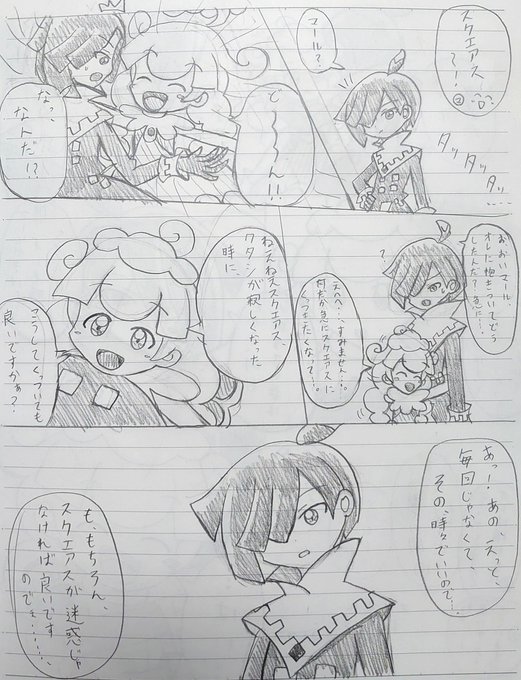 スクエアス
〜！！
マール？
タッ
タッ
タッ
ど〜〜〜ん！！
なっ、
なんだ！？
お、おい、マール…
オレに抱きついてどう
したんだ？急に…。
？
えへへ…すみません…。
何だか急にスクエアスに
くっつきたくなって…。
ねえねえスクエアス、
ワタシが寂しくなった
時に、
こうしてくっついても
良いですかぁ？
あっ！あの、えっと、
毎回じゃなくて、
その、時々でいいので…
も、もちろん、
スクエアスが迷惑じゃ
なければ良いです
のでぇ………、